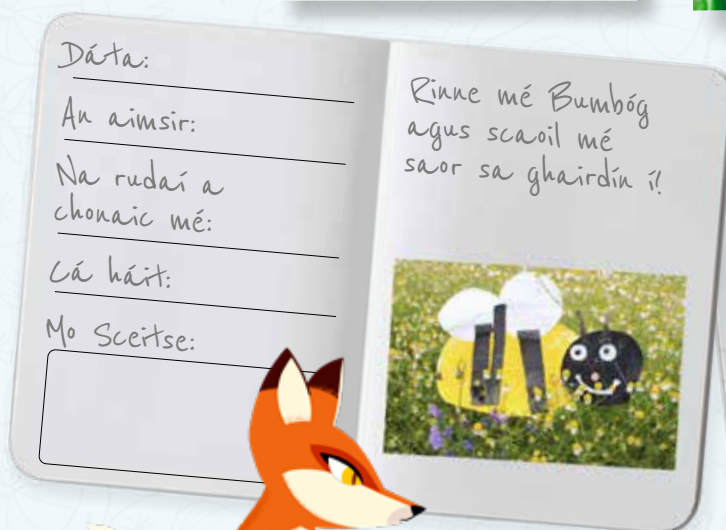 Dáta:
An aimsir:
Na rudaí a
chonaic mé:
Cá háit:
Mo Sceitse:
Rinne mé Bumbóg
agus scaoil mé
saor sa ghairdín í!